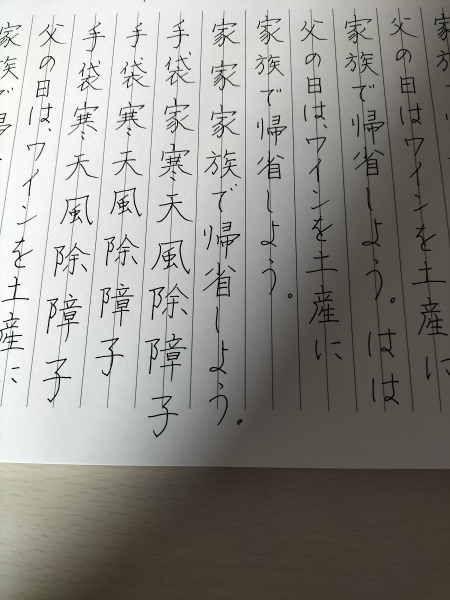 家族
父の日はワインを土産に
家族で帰省しよう。はは
父の日は、ワインを土産に
家族で帰省しよう。
家家家族で帰省しよう。
手袋家寒天風除障子
手袋寒天風除障子
手袋寒天風除障子
父の日は、ワインを土産に
家族で帰